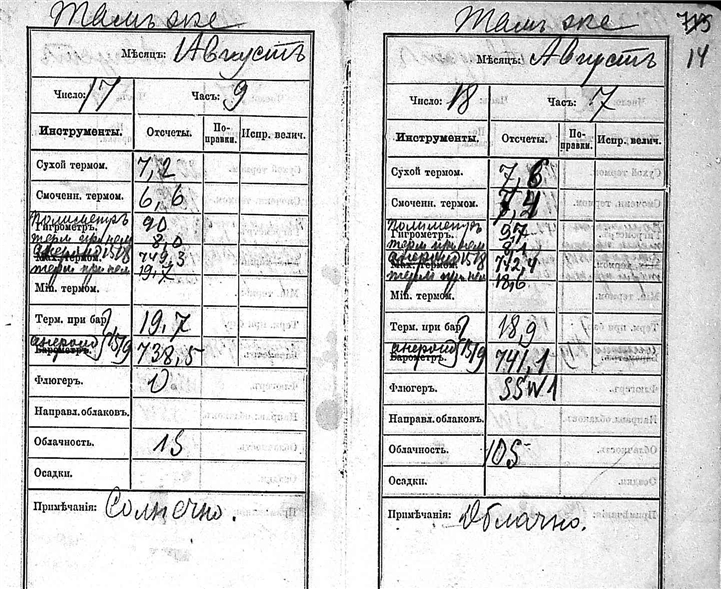 Тамъ же
Мѣсяцъ: Августъ
Число: 17 Часъ: 9
Инструменты. Отсчеты. По-правки. Испр. велич.
Сухой термом. 7,2
Смоченн. термом. 6,6
Полиметръ 90
Гигрометръ.
терм при нем 8,0
анероид 1518 749,3
Мах. термом.
терм при нем 19,7
Min. термом.
Терм. при бар 19,7
анероид 15/9 738,5
Барометръ.
Флюгеръ. 0
Направл. облаковъ.
Облачность. 1S
Осадки.
Примѣчанія: Солнечно.
Тамъ же
715
14
Мѣсяцъ: Августъ
Число: 18 Часъ: 7
Инструменты. Отсчеты. По-правки. Испр. велич.
Сухой термом. 7,6
Смоченн. термом. 7,4
Полиметръ 97
Гигрометръ.
терм при нем 8,1
анероид 1518 742,4
Мах. термом.
терм при нем 18,6
Min. термом.
Терм. при бар 18,9
анероид 15/9 741,1
Барометръ.
Флюгеръ. SSW1
Направл. облаковъ.
Облачность. 10S
Осадки.
Примѣчанія: Облачно.